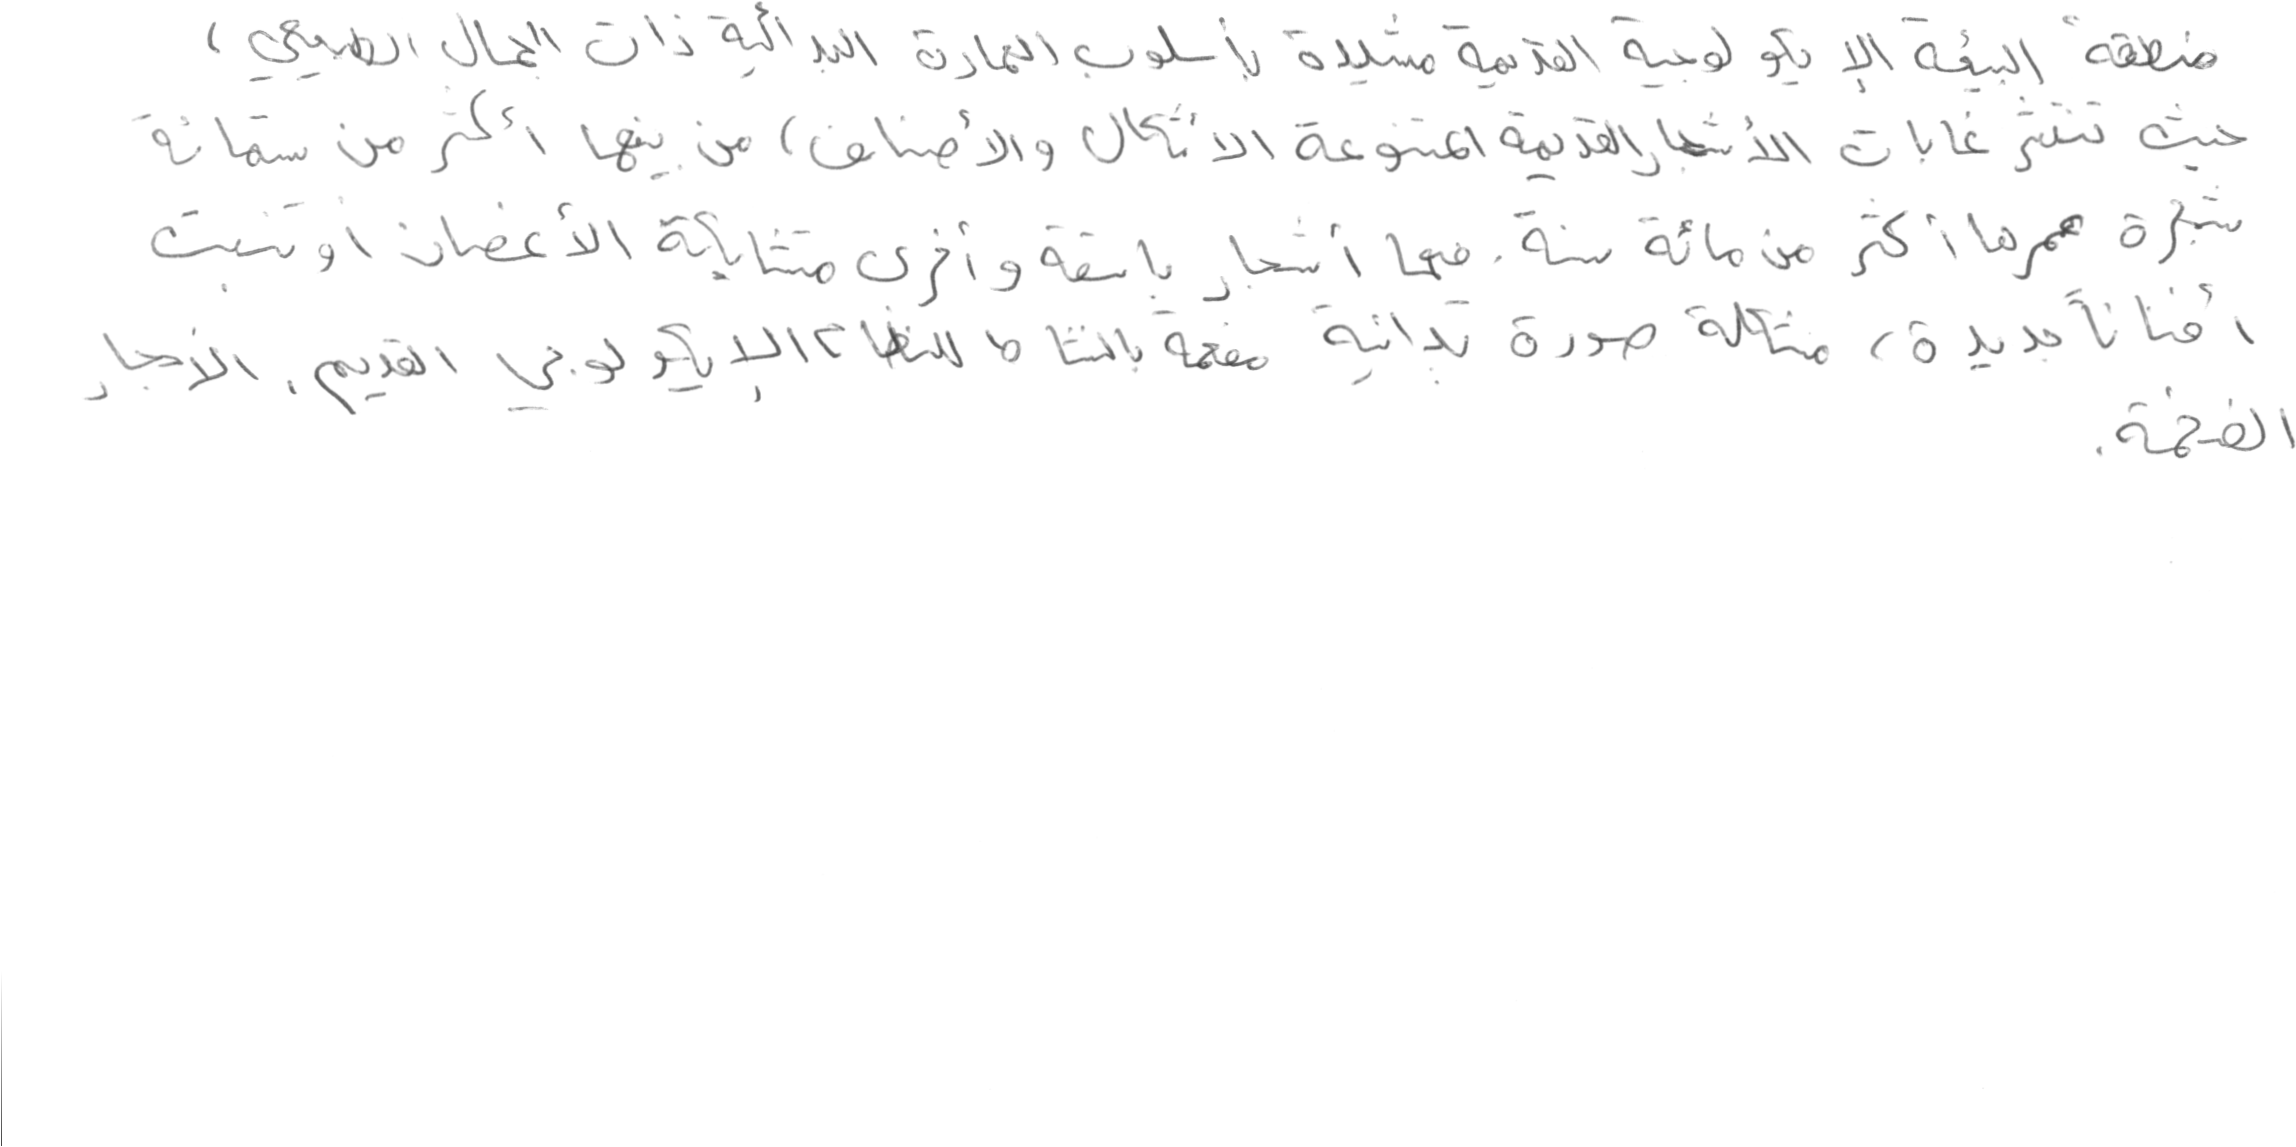 منطقة البيئة الإيكولوجية القديمة مشيدة بأسلوب العمارة البدائية ذات الجمال الطبيعي،
حيث تنتشر غابات الأشجار القديمة المتنوعة الأشكال والأصناف، من بينها أكثر من ستمائة
شجرة عمرها أكثر من مائة سنة. فيها أشجار باسقة وأخرى متشابكة الأغصان أو تنبت
أفناناً جديدة، مشكلة صورة بدائية مفعمة بالنشاط للنظام الإيكولوجي القديم. الأحجار
الضخمة.